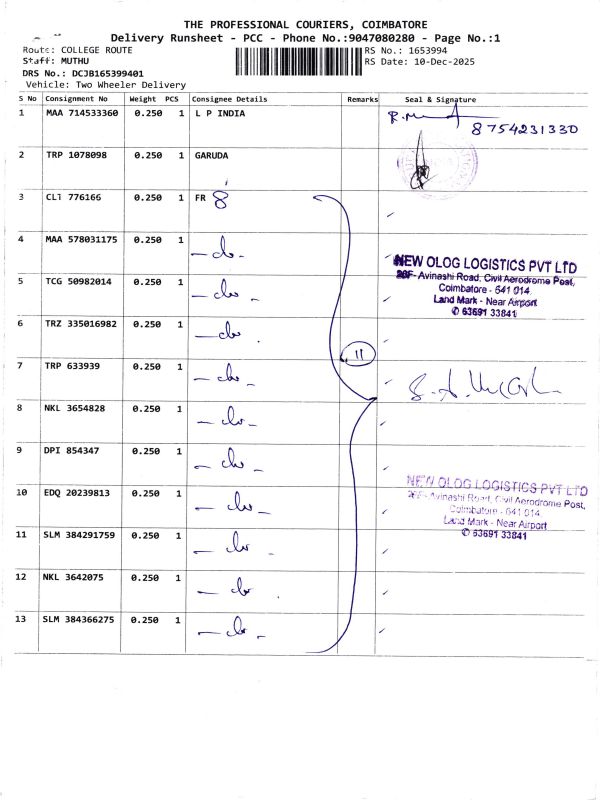 THE PROFESSIONAL COURIERS, COIMBATORE
Delivery Runsheet - PCC - Phone No.:9047080280 - Page No.:1
Route: COLLEGE ROUTE
RS No.: 1653994
Staff: MUTHU
RS Date: 10-Dec-2025
DRS No.: DCJB165399401
Vehicle: Two Wheeler Delivery
S No Consignment No Weight PCS Consignee Details Remarks Seal & Signature
1 MAA 714533360 0.250 1 L P INDIA
8754231330
2 TRP 1078098 0.250 1 GARUDA
3 CLT 776166 0.250 1 FR 8
4 MAA 578031175 0.250 1 - do -
NEW OLOG LOGISTICS PVT LTD
26F- Avinashi Road, Civil Aerodrome Post,
5 TCG 50982014 0.250 1 - do -
Coimbatore - 641 014.
Land Mark - Near Airport
✆ 63691 33841
6 TRZ 335016982 0.250 1 - do -
11
7 TRP 633939 0.250 1 - do -
8 NKL 3654828 0.250 1 - do -
9 DPI 854347 0.250 1 - do -
NEW OLOG LOGISTICS PVT LTD
26F- Avinashi Road, Civil Aerodrome Post,
10 EDQ 20239813 0.250 1 - do -
Coimbatore - 641 014.
Land Mark - Near Airport
✆ 63691 33841
11 SLM 384291759 0.250 1 - do -
12 NKL 3642075 0.250 1 - do
13 SLM 384366275 0.250 1 - do -